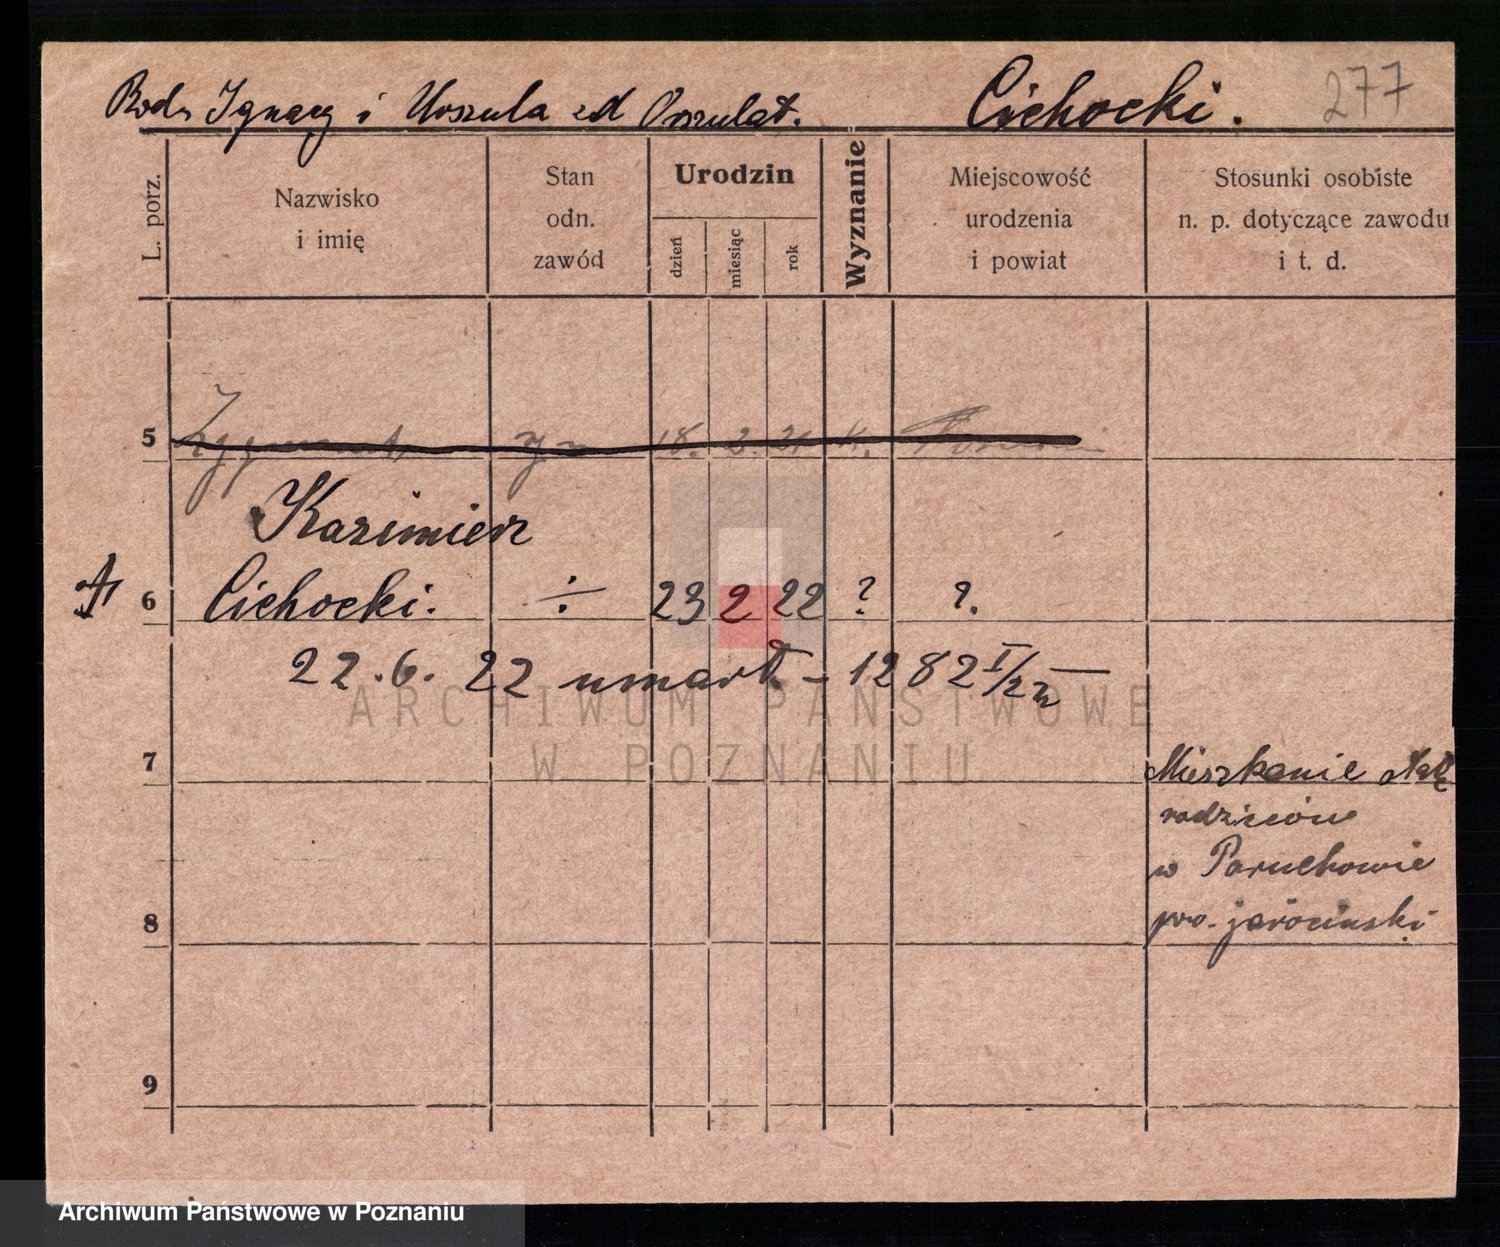 Rod. Ignacy i Urszula zd Orszulat. Cichocki. 277
L. porz.
Nazwisko
i imię
Stan
odn.
zawód
Urodzin
dzień
miesiąc
rok
Wyznanie
Miejscowość
urodzenia
i powiat
Stosunki osobiste
n. p. dotyczące zawodu
i t. d.
5 Zygmunt syn 18. 2. 21 k.
Kazimierz
6 Cichocki. ÷ 23 2 22 ? ?.
22. 6. 22 umarł - 1282 I/22
7
Mieszkanie
rodziców
w Paruchowie
pow. jarociński
8
9
ARCHIWUM PAŃSTWOWE
W POZNANIU
Archiwum Państwowe w Poznaniu